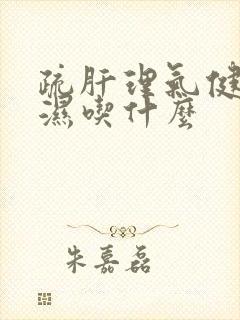 疏肝理气健
濕喫什麼
朱嘉磊